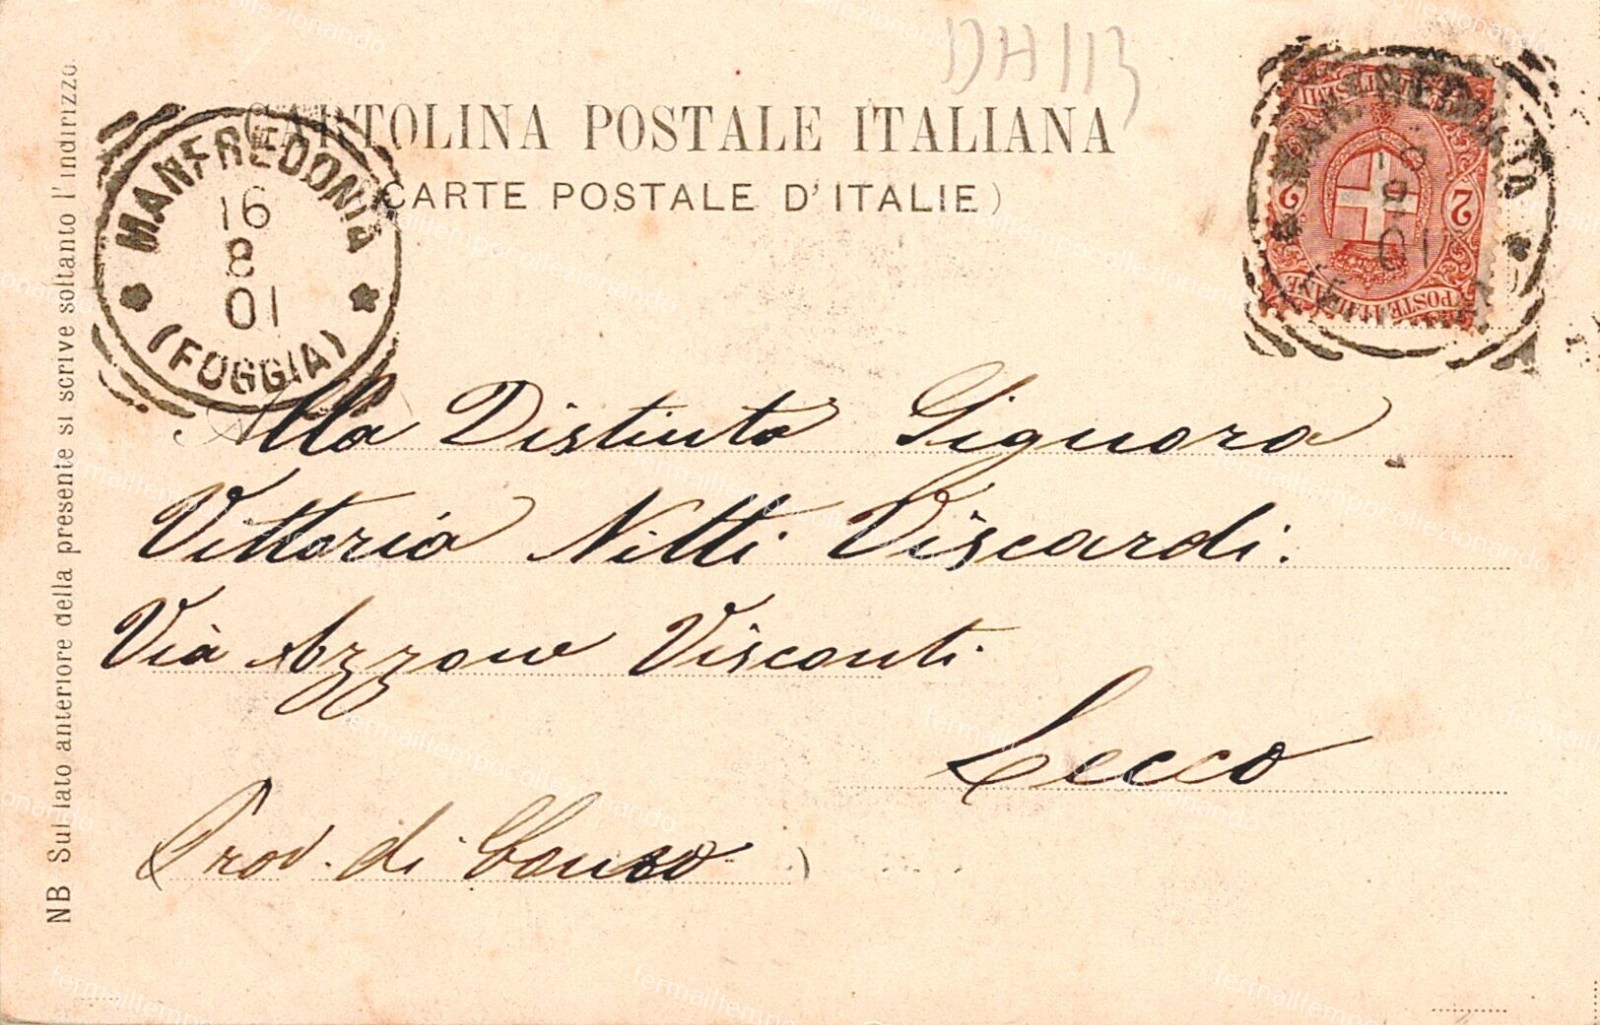 DH113
CARTOLINA POSTALE ITALIANA
(CARTE POSTALE D'ITALIE)
MANFREDONIA
16
8
01
(FOGGIA)
MANFREDONIA
16
8
01
POSTE ITALIANE
2 2
Alla Distinta Signora
Vittoria Nitti Viscardi.
Via Azzone Visconti
Lecco
Prov. di Como)
NB Sul lato anteriore della presente si scrive soltanto l'indirizzo.
fermailtempocollezionando